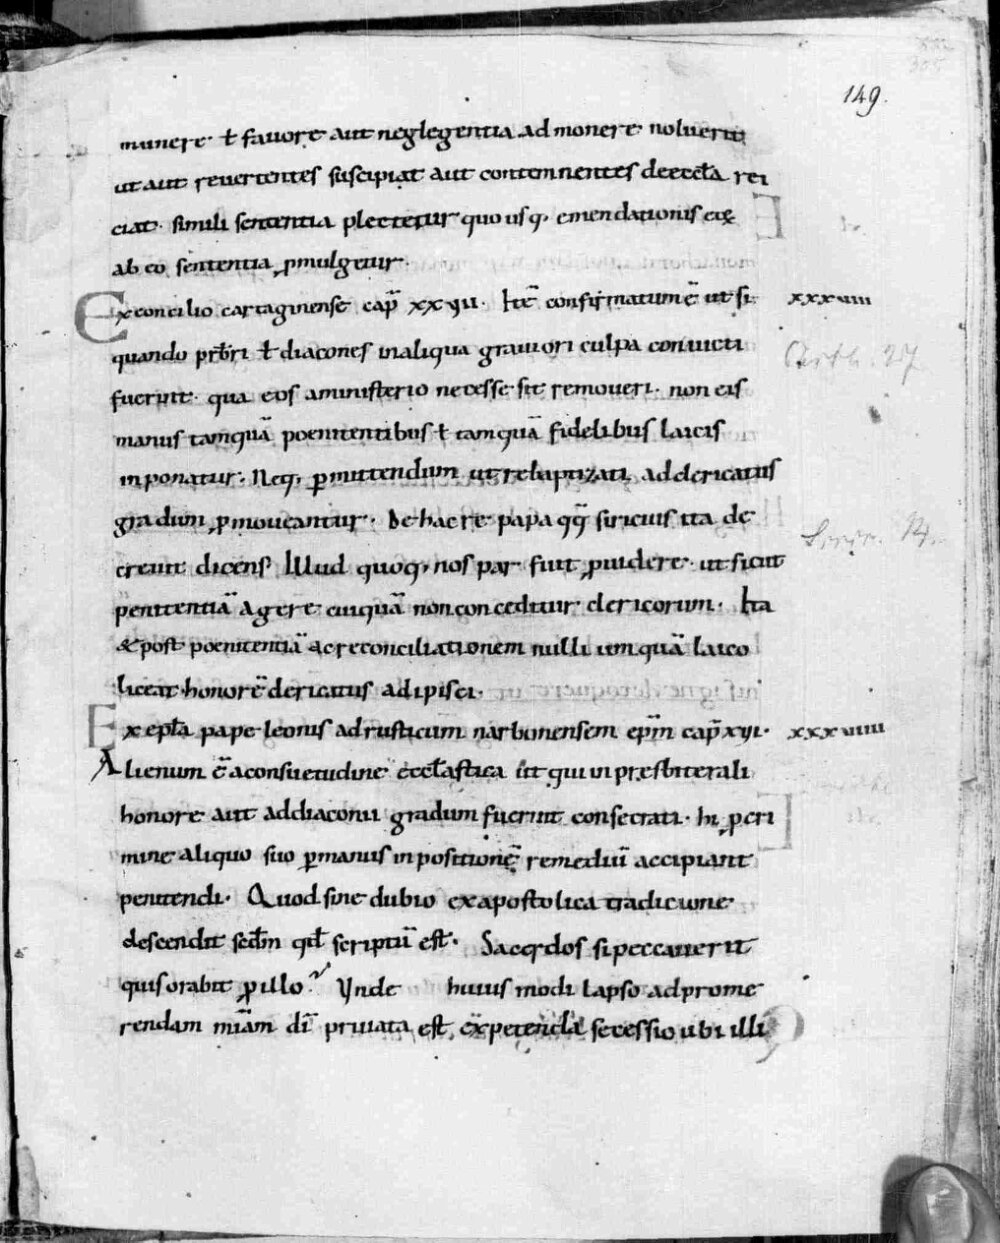 149.
munere· ł fauore aut neglegentia ad monere noluerit
ut aut reuertentes suscipiat aut contemnentes deęccła rei
ciat· simili sententia plectetur quo usq; emendationis eiꝰ
ab eo sententia ꝓmulgetur·
Ex concilio cartaginense cap̄ xxvii· Itē confirmatum ē ut si xxxviii
quando prb̄ri ł diacones in aliqua grauiori culpa conuicti
fuerint· qua eos aministerio necesse sit remoueri· non eis
manus tamquā poenitentibus ł tamquā fidelibus laicis
inponatur· Neq; ꝑmittendum ut rebaptizati adclericatus
gradum ꝓmoueantur· De hac re papa qq̄ siricius ita de
creuit dicens· Illud quoq; nos par fuit ꝓuidere· ut sicut
penitentiā agere cuiquā non conceditur clericorum· Ita
& post poenitentiā ac reconciliationem nulli umquā laico
liceat honorē clericatus adipisci·
Ex epła pape leonis ad rusticum narbonensem ep̄m cap̄ xvi· xxxviiii
Alienum ē aconsuetudine ęccłastica ut qui in presbiterali
honore aut addiaconii gradum fuerint consecrati· hi ꝓ cri
mine aliquo suo ꝑ manus inpositionē remediū accipiant
penitendi· Quod sine dubio ex apostolica tradicione
descendit secd̄m qđ scriptū est· Sacerdos si peccauerit
quis orabit ꝓ illo? Vnde huius modi lapso ad prome
rendam mīam dī priuata est expetenda secessio ubi illi